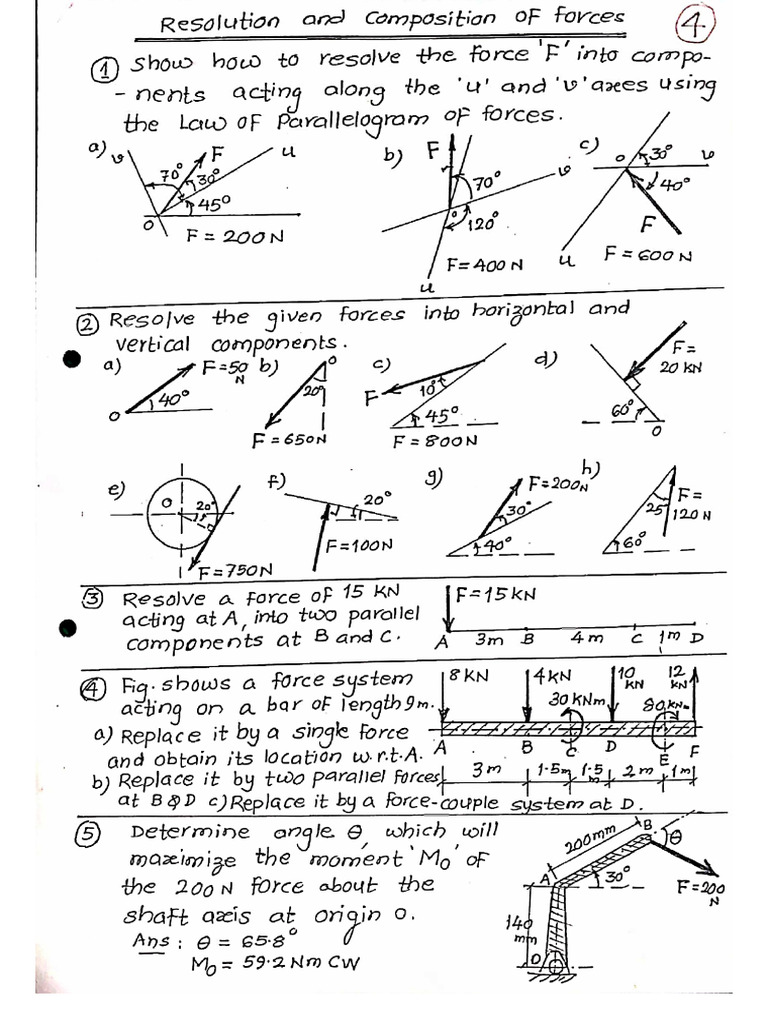 Resolution and Composition of forces
④
① Show how to resolve the force 'F' into compo-
-nents acting along the 'u' and 'v' axes using
the Law of Parallelogram of forces.
a) v F u 70° 30° 45° O
F = 200N
b) F v 70° 120° O u
F = 400 N
c) O 30° v 40° F u
F = 600N
② Resolve the given forces into horizontal and
vertical components.
a) F = 50 N 40° O
b) O 20° F = 650N
c) F 10° 45° F = 800N
d) F = 20 KN 60° O
e) O 20° F = 750N
f) 20° F = 100N
g) F = 200N 30° 40°
h) F = 120 N 25° 60°
③ Resolve a force of 15 KN
acting at A, into two parallel
components at B and C.
F = 15 KN
A 3m B 4m C 1m D
④ Fig. shows a force system
acting on a bar of length 9m.
a) Replace it by a single force
and obtain its location w.r.t.A.
b) Replace it by two parallel forces
at B & D c) Replace it by a force-couple system at D.
8 KN 4 KN 10 KN 12 KN
30 KNm
A B C D E F
3m 1.5m 1.5m 2m 1m
⑤ Determine angle θ, which will
maximize the moment 'Mo' of
the 200 N force about the
shaft axis at origin O.
Ans : θ = 65.8°
Mo = 59.2 Nm CW
200mm B θ
A 30° F = 200 N
140 mm
O